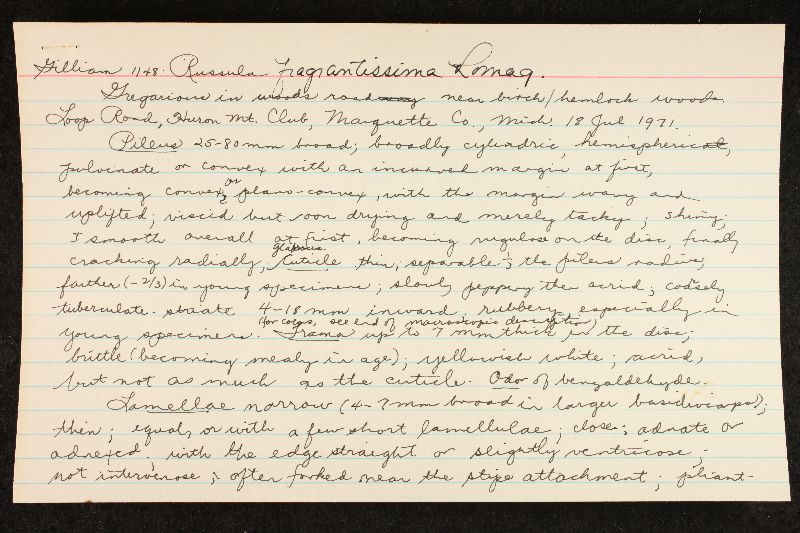 Gilliam 1148. Russula fragrantissima Romag.
Gregarious in woods road near birch/hemlock woods.
Loop Road, Huron Mt. Club, Marquette Co., Mich. 18 Jul 1971.
Pileus 25-80 mm broad; broadly cylindric, hemispheric,
pulvinate or convex with an incurved margin at first,
becoming convex or plano-convex, with the margin wavy and
uplifted; viscid but soon drying and merely tacky; shiny;
± smooth overall at first, becoming rugulose on the disc, finally
cracking radially; glabrous. Cuticle thin, separable 1/3 the pileus radius,
farther (-2/3) in young specimens; slowly peppery then acrid; coarsely
tuberculate-striate 4-18 mm inward, rubbery, especially in
young specimens. (for color, see end of macroscopic description) Trama up to 7 mm thick in the disc;
brittle (becoming mealy in age); yellowish white; acrid,
but not as much as the cuticle. Odor of benzaldehyde.
Lamellae narrow (4-7 mm broad in larger basidiocarps);
thin; equal, or with a few short lamellulae; close; adnate or
adnexed; with the edge straight or slightly ventricose;
not intervenose; often forked near the stipe attachment; pliant-